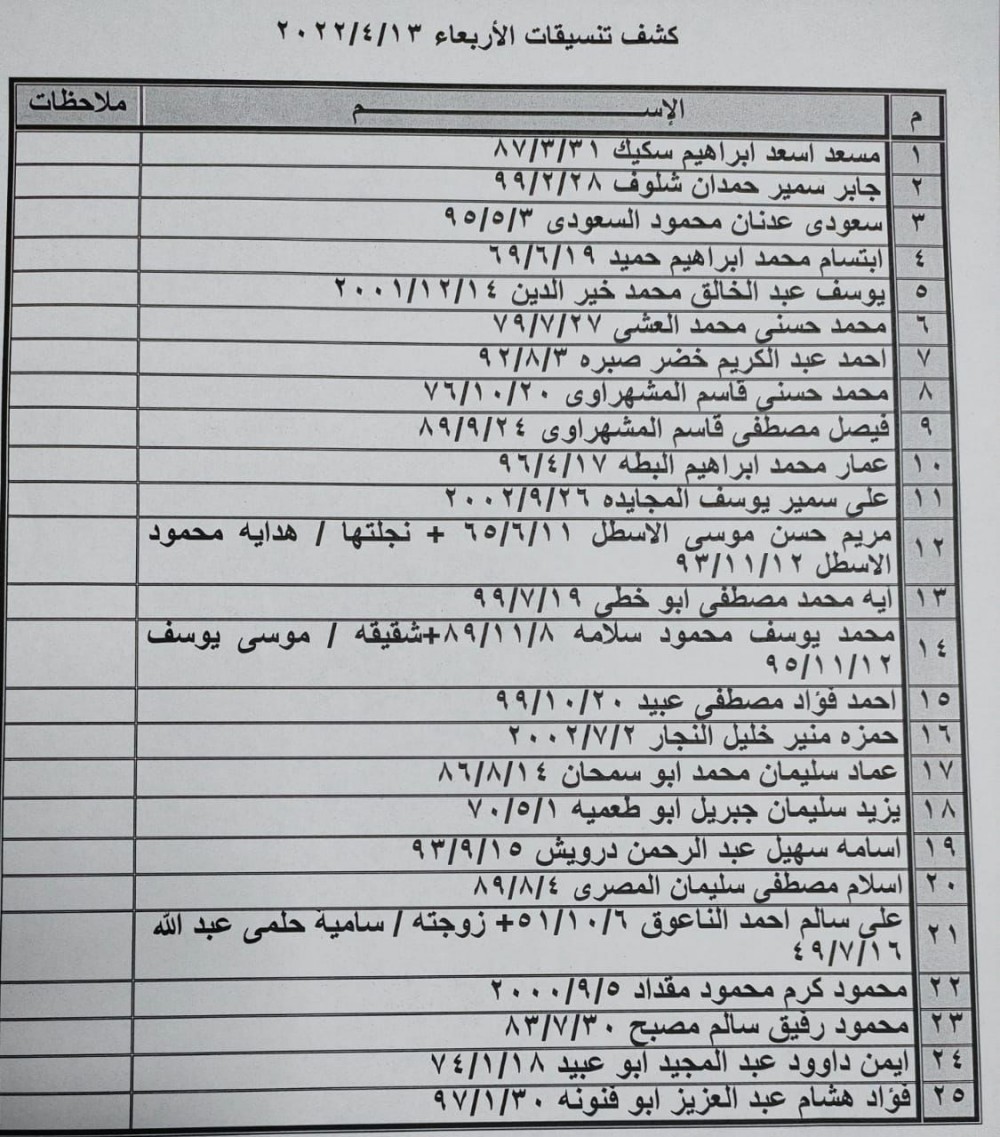 كشف تنسيقات الأربعاء ٢٠٢٢/٤/١٣
م الإســـــــــــــــــــم ملاحظات
١ مسعد اسعد ابراهيم سكيك ٨٧/٣/٣١
٢ جابر سمير حمدان شلوف ٩٩/٢/٢٨
٣ سعودى عدنان محمود السعودى ٩٥/٥/٣
٤ ابتسام محمد ابراهيم حميد ٦٩/٦/١٩
٥ يوسف عبد الخالق محمد خير الدين ٢٠٠١/١٢/١٤
٦ محمد حسنى محمد العشى ٧٩/٧/٢٧
٧ احمد عبد الكريم خضر صبره ٩٢/٨/٣
٨ محمد حسنى قاسم المشهراوى ٧٦/١٠/٢٠
٩ فيصل مصطفى قاسم المشهراوى ٨٩/٩/٢٤
١٠ عمار محمد ابراهيم البطه ٩٦/٤/١٧
١١ على سمير يوسف المجايده ٢٠٠٢/٩/٢٦
١٢ مريم حسن موسى الاسطل ٦٥/٦/١١ + نجلتها / هدايه محمود
الاسطل ٩٣/١١/١٢
١٣ ايه محمد مصطفى ابو خطى ٩٩/٧/١٩
١٤ محمد يوسف محمود سلامه ٨٩/١١/٨+شقيقه / موسى يوسف
٩٥/١١/١٢
١٥ احمد فؤاد مصطفى عبيد ٩٩/١٠/٢٠
١٦ حمزه منير خليل النجار ٢٠٠٢/٧/٢
١٧ عماد سليمان محمد ابو سمحان ٨٦/٨/١٤
١٨ يزيد سليمان جبريل ابو طعميه ٧٠/٥/١
١٩ اسامه سهيل عبد الرحمن درويش ٩٣/٩/١٥
٢٠ اسلام مصطفى سليمان المصرى ٨٩/٨/٤
٢١ على سالم احمد الناعوق ٥١/١٠/٦+ زوجته / سامية حلمى عبد الله
٤٩/٧/١٦
٢٢ محمود كرم محمود مقداد ٢٠٠٠/٩/٥
٢٣ محمود رفيق سالم مصبح ٨٣/٧/٣٠
٢٤ ايمن داوود عبد المجيد ابو عبيد ٧٤/١/١٨
٢٥ فؤاد هشام عبد العزيز ابو فنونه ٩٧/١/٣٠